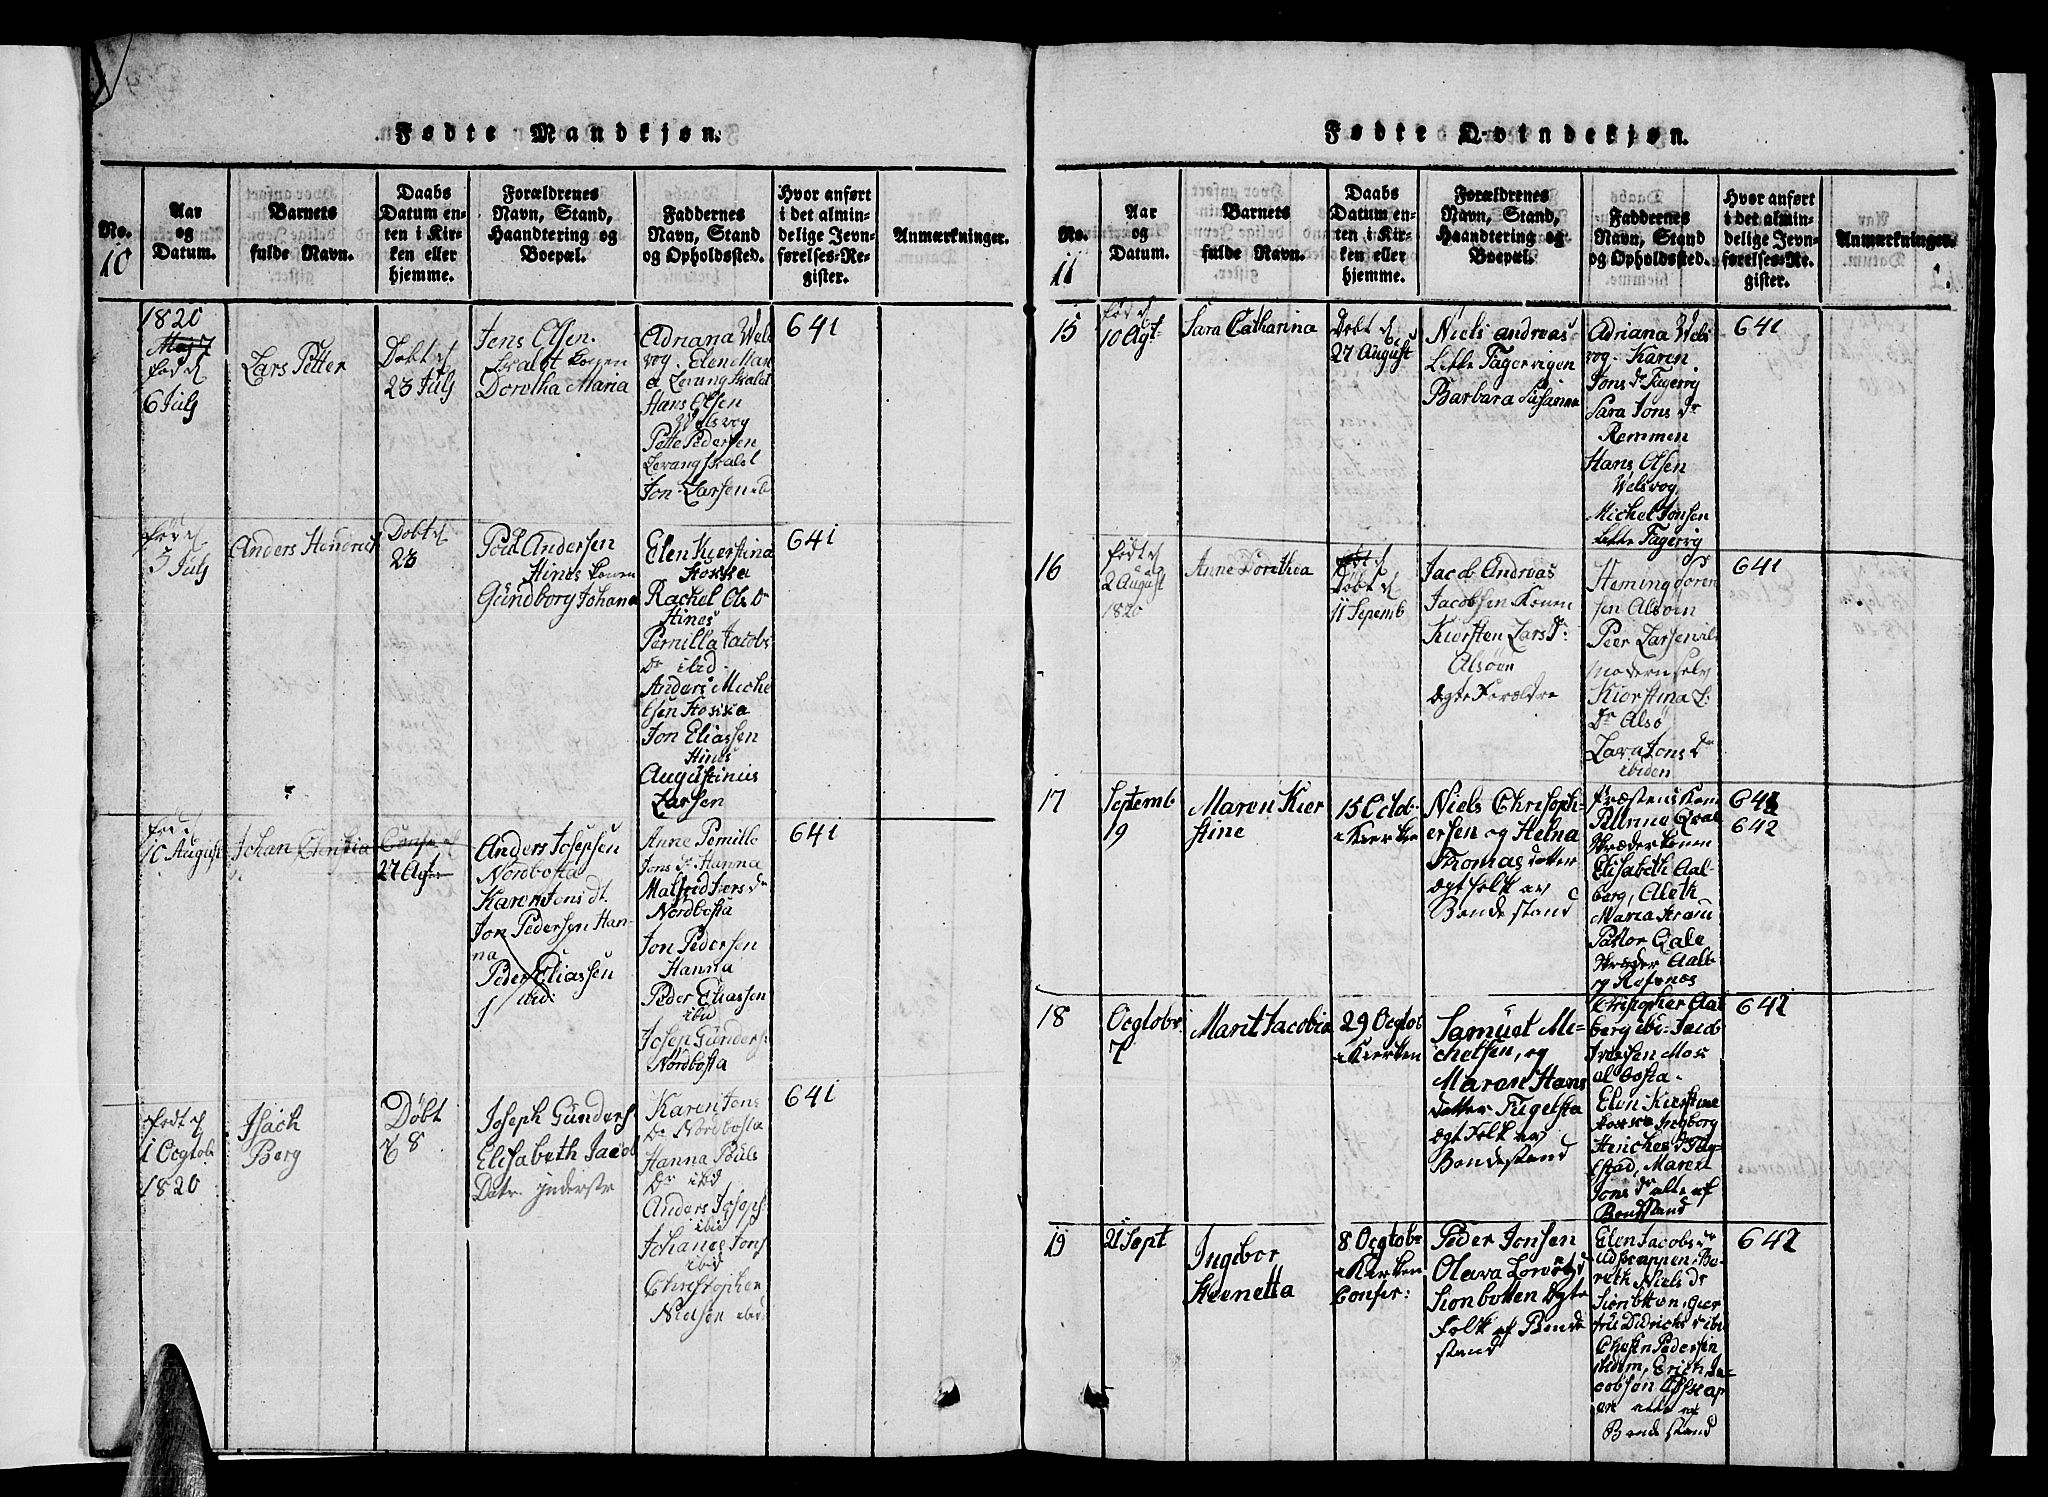 Fødte Mandkjøn.
No.
10
Aar
og
Datum.
Barnets
fulde Navn.
Daabs
Datum en-
ten i Kir-
ken eller
hjemme.
Forældrenes
Navn, Stand,
Haandtering og
Boepæl.
Faddernes
Navn, Stand
og Opholdssted.
Hvor anført
i det almin-
delige Jevn-
førelses-Re-
gister.
Anmærkninger.
1820
fød d
6 July
Lars Petter
Døbt d
23 July
Jens Olsen
Kvalöt konen
Dorotha Maria
Adriana Wels
vog. Elen Mar
Hans Olsen
Welsvog
Pette Pedersen
Levangskalet
Jon Larsen ib
641
fød d
3 July
Anders Hendrich
Døbt d
23
Poul Andersen
Hines konen
Gündborg Johana
Elen Kierstina
Hoxsa
Rachel Ols Dr
Hines
Pernilla Jacobs
Dr ibid
Anders Miche
lsen Hoxsa
Jon Eliassen
Hines
Augustinius
Larsen
641
fød d
10 August
Johan
27 Agt
Anders Josepsen
Nordbosta
Karen Jons dt.
Jon Pedersen Han-
na
Peder Eliassen
ibid:
Anne Pernille
Jons Dr Hanna
Malfrid Ivers Dr
Nordbosta
Jon Pedersen
Hanna
Peder Eliassen
ibid
Josep Günders:
Nordbosta
641
Født d
1 Ocgtob:
1820
Isach
Berg
Döbt
8
Joseph Günders
Elisabeth Jacob
Datr. Inderste
Karen Jons
Dr Nordbosta
Hanna Pouls
Dr ibid
Anders Joseph
ibid
Johanes Jons
ibid
Christopher
Nielsen ibid
641
Fødte Qvindekjøn.
No.
11
Aar
og
Datum.
Barnets
fulde Navn.
Daabs
Datum en-
ten i Kir-
ken eller
hjemme.
Forældrenes
Navn, Stand,
Haandtering og
Boepæl.
Faddernes
Navn, Stand
og Opholdssted.
Hvor anført
i det almin-
delige Jevn-
førelses-Re-
gister.
Anmærkninger.
15
fød d
10 Agt
Sara Catharina
Døbt d
27 August
Niels andreas
Lille Fagervigen
Barbara Susanna
Adriana Wels
vog. Karen
Jons Dr Fagervig
Sara Jons Dr
Remmen
Hans Olsen
Welsvog
Michel Jonsen
Lille Fagervig
641
16
født d
2 August
1820
Anne Dorethea
Døbt d
11 Sepemb
Jacob Andreas
Jacobsen Konen
Kiersten Lars Dr:
Alsöen
ægte Forældre
Heming Soren
sen Alsöen
Peer Larsen ib
Moderen selv
Kierstina L:
Dr Alsö
Lava Jons Dr
ibiden
641
17
Septemb
19
Maren Kier
stine
15 Octob
i Kierken
Niels Chrisoph-
ersen og Helna
Thomas datter
ægt folk av
Bonde stand
Præstens Kone
Skræder konen
Elisabeth Aal-
berg, Aleth
Maria
Pastor Qale
Skræder Aalb-
641
642
18
Ocgtobr
7
Marit Jacobia
29 Ocgtob
i Kierken
Samuel Mi-
chelsen, og
Maren Hans
datter Fugelsta
ægt Folk av
Bondestand
Christopher Aal
berg ibi: Jacob
Elen Kierstine
Hoxsa Ingborg
Hinriches Dr Fug-
elstad, Maren
Jons Dr alle af
Bondstand
642
19
21 Sept
Ingibor
Heenetta
8 Ocgtobr
i Kierken
Confir:
Peder Jonsen
Olava Lorents d
Sionbotten ægte
Folk af Bonde
stand
Elen Jacobs Dr
Be-
reth Niels Dr
Sionbotten, Gier
tru Didrichs Dr ibi
Chasten Pedersen
ibidem, Erich Ja-
cobsen
alle af
Bonde stand
642